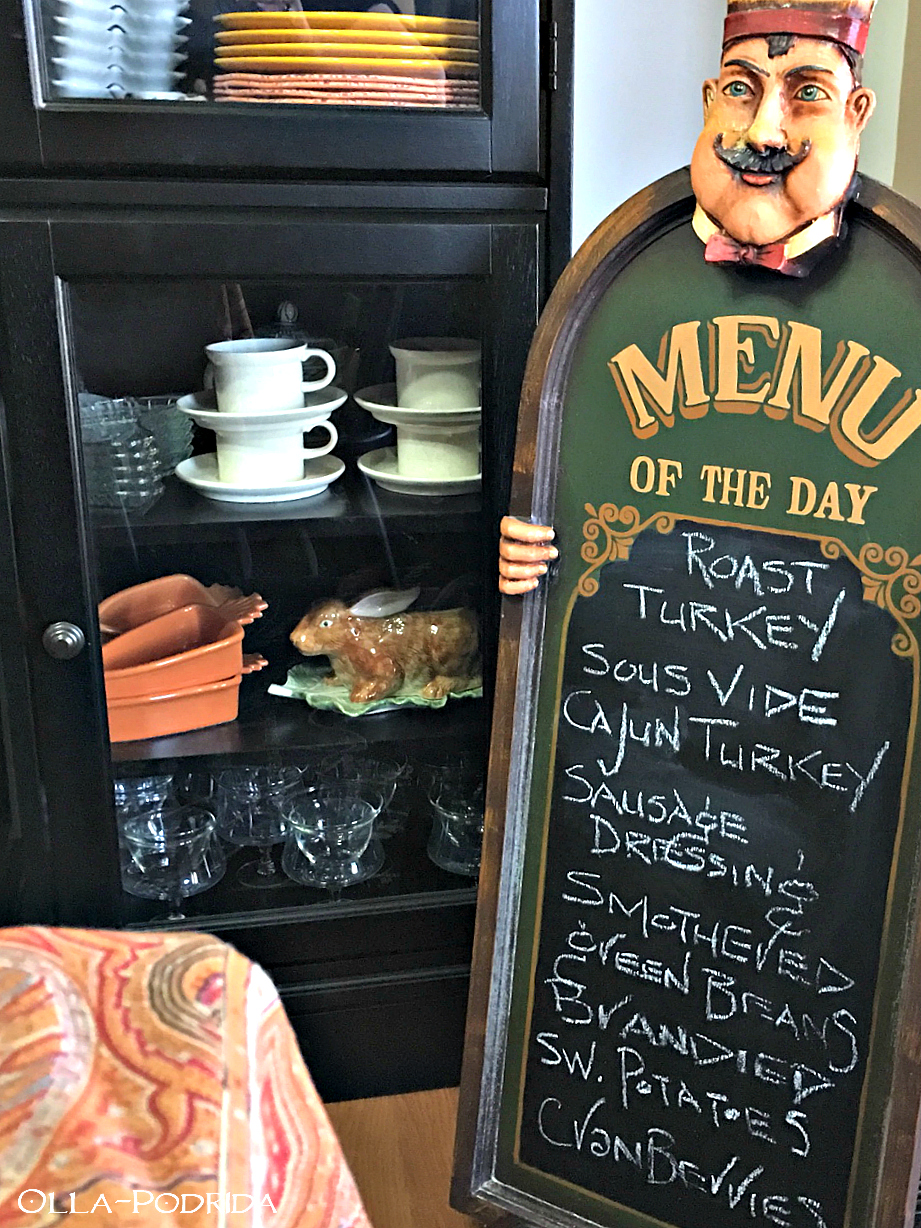 MENU
OF THE DAY
ROAST
TURKEY
SOUS VIDE
CAJUN TURKEY
SAUSAGE
DRESSING
SMOTHERED
GREEN BEANS
BRANDIED
SW. POTATOES
CRANBERRIES
OLLA-PODRIDA